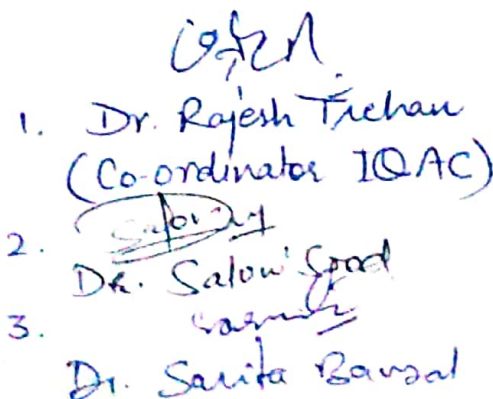 1. Dr. Rajesh Trehan
(Co-ordinator IQAC)
2.
Dr. Saloni Sood
3.
Dr. Sarita Bansal